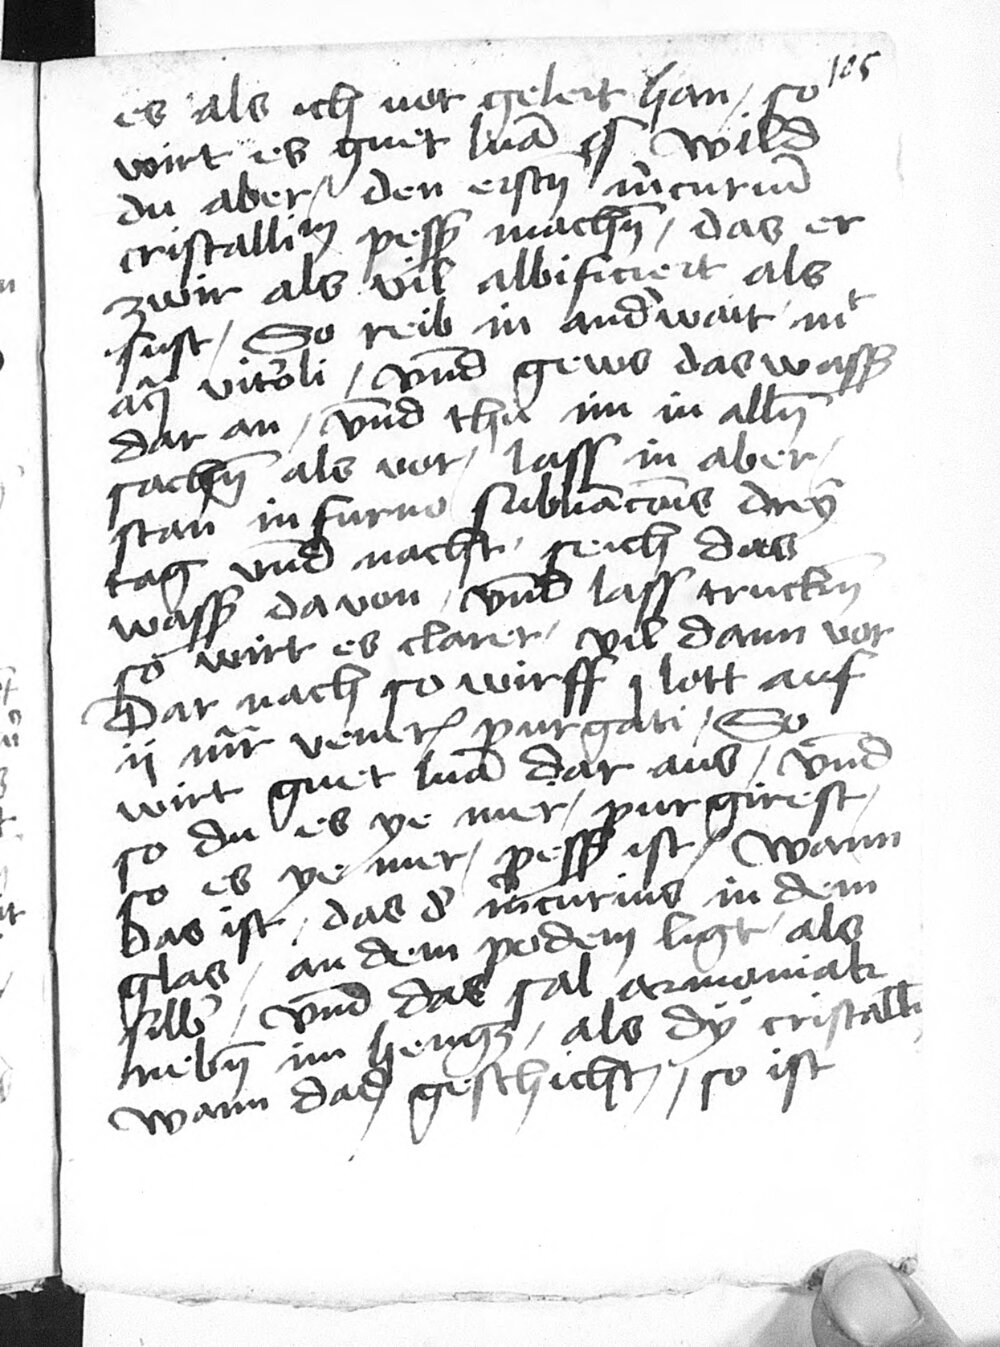 105
es als ich vor gelert han / so
wirt es guet luā ¶ Wild
du aber / den erstn̄ m̄curiū
cristallim pesſß machn̄ / das er
zwir als vil albificiert als
sust / So reib in and'wait / mit
aq̄ vitroli / vnd gews das wasſß
dar an / vnd thu im in alln̄
sachn̄ als vor / lass in aber /
stan in furno sublīacōis drey
tag vnd nacht / seich das
wasſß da von / vnd lass truckn̄
so wirt es clarer / vil dann vor
Dar nach so wirff 1 lott auf
ij mr̄ vener̄ purgati / So
wirt guet luā dar aus / vnd
so du es ye mer / purgirest /
so es ye mer / pesſß ist / Wann
das ist / das d' m̄curius in dem
glas / an dem podem ligt / als
silb' / vnd das sal armoniak
nebn̄ im hengt / als dÿ cristalli
wann das geschicht / so ist